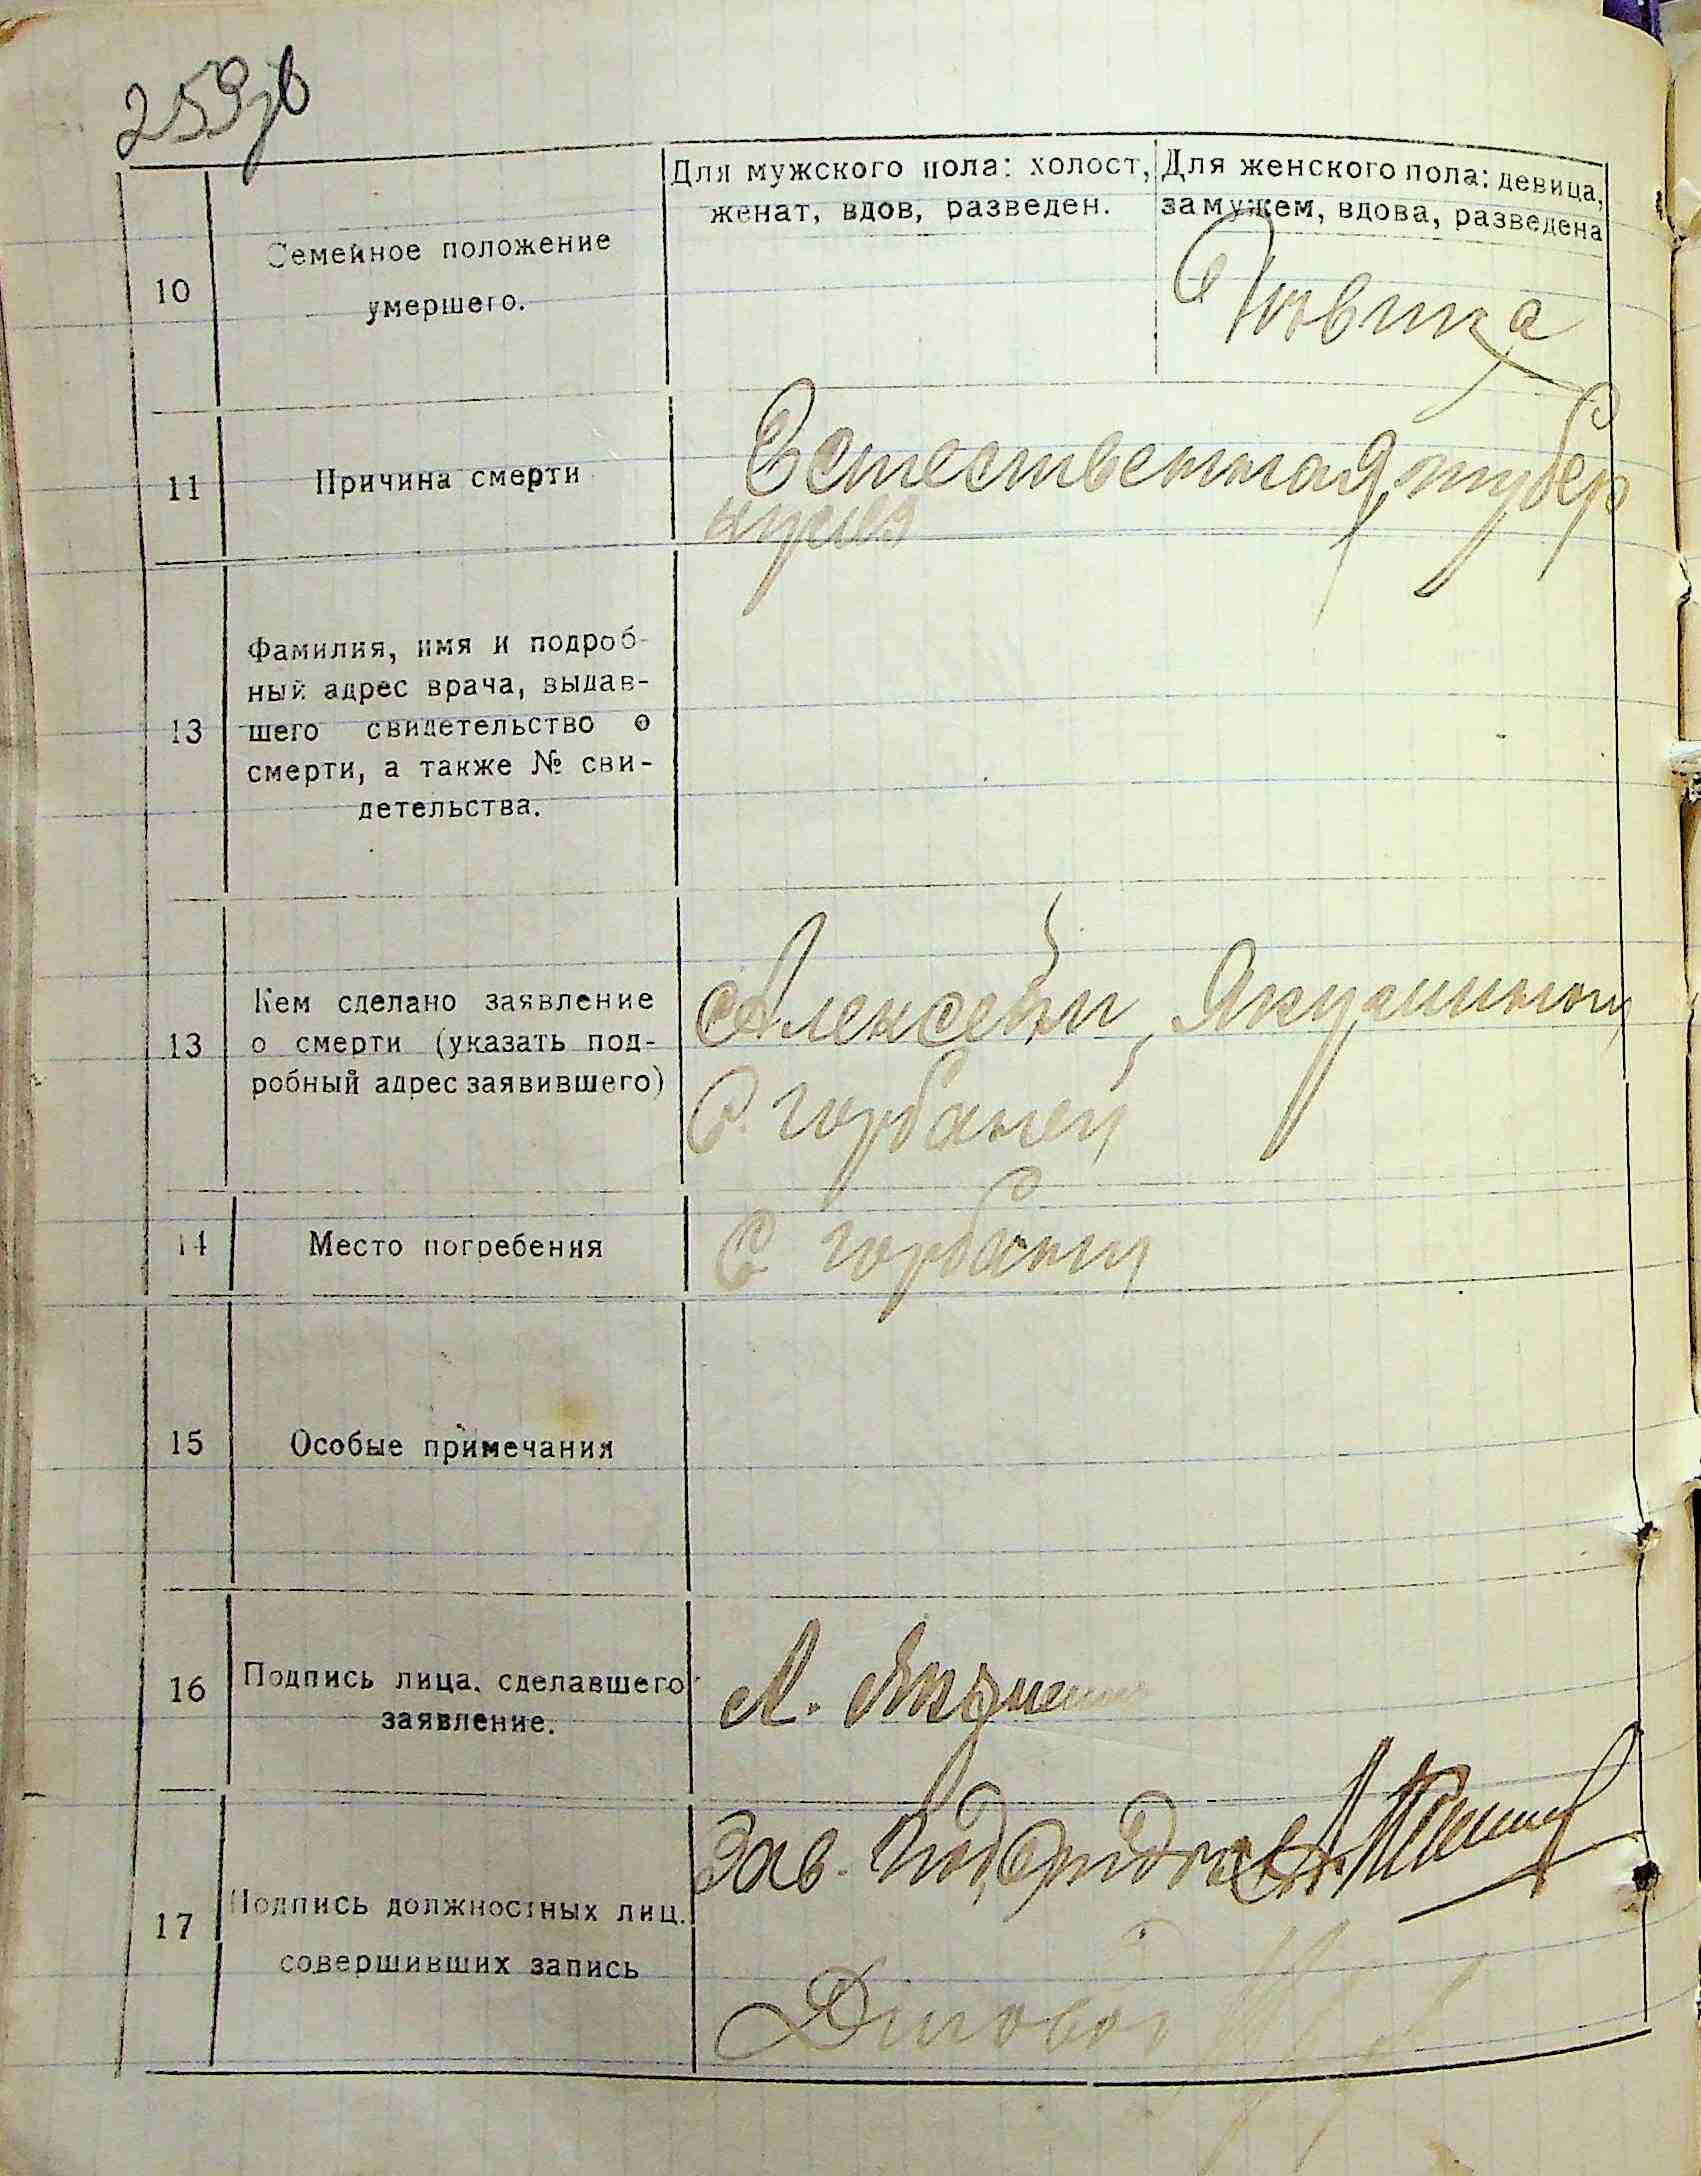 259
Для мужского пола: холост,
женат, вдов, разведен.
Для женского пола: девица,
замужем, вдова, разведена
10
Семейное положение
умершего.
Девица
11
Причина смерти
Естественная, тубер
кулез
13
Фамилия, имя и подроб-
ный адрес врача, выдав-
шего свидетельство о
смерти, а также № сви-
детельства.
13
Кем сделано заявление
о смерти (указать под-
робный адрес заявившего)
Алексеем
С. Горбанец
14
Место погребения
С Горбанец
15
Особые примечания
16
Подпись лица, сделавшего
заявление.
А.
17
Подпись должностных лиц.
совершивших запись
Зав.